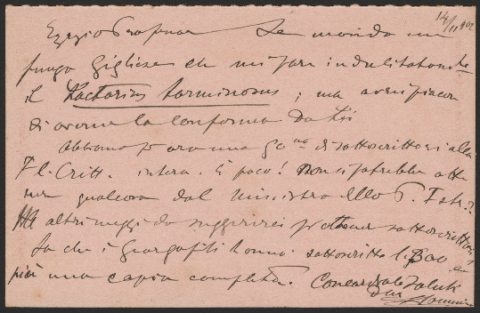 14/11
Egregio Professore Le mando un
fungo Gigliese che mi pare indubitatamente
il Lactarius torminosus ; ma avrei piacere
di averne la conferma da Lei
Abbiamo per ora una 50na di sottoscrittori alla
Fl. Critt. intera. È poco! Non si potrebbe otte
ner qualcosa dal ministro della P. Istr.?
Ha altri mezzi da suggerirci per ottener sottoscrittori?
Sa che i Georgofili hanno sottoscritto
più una copia completa. Concordato saluti
dal